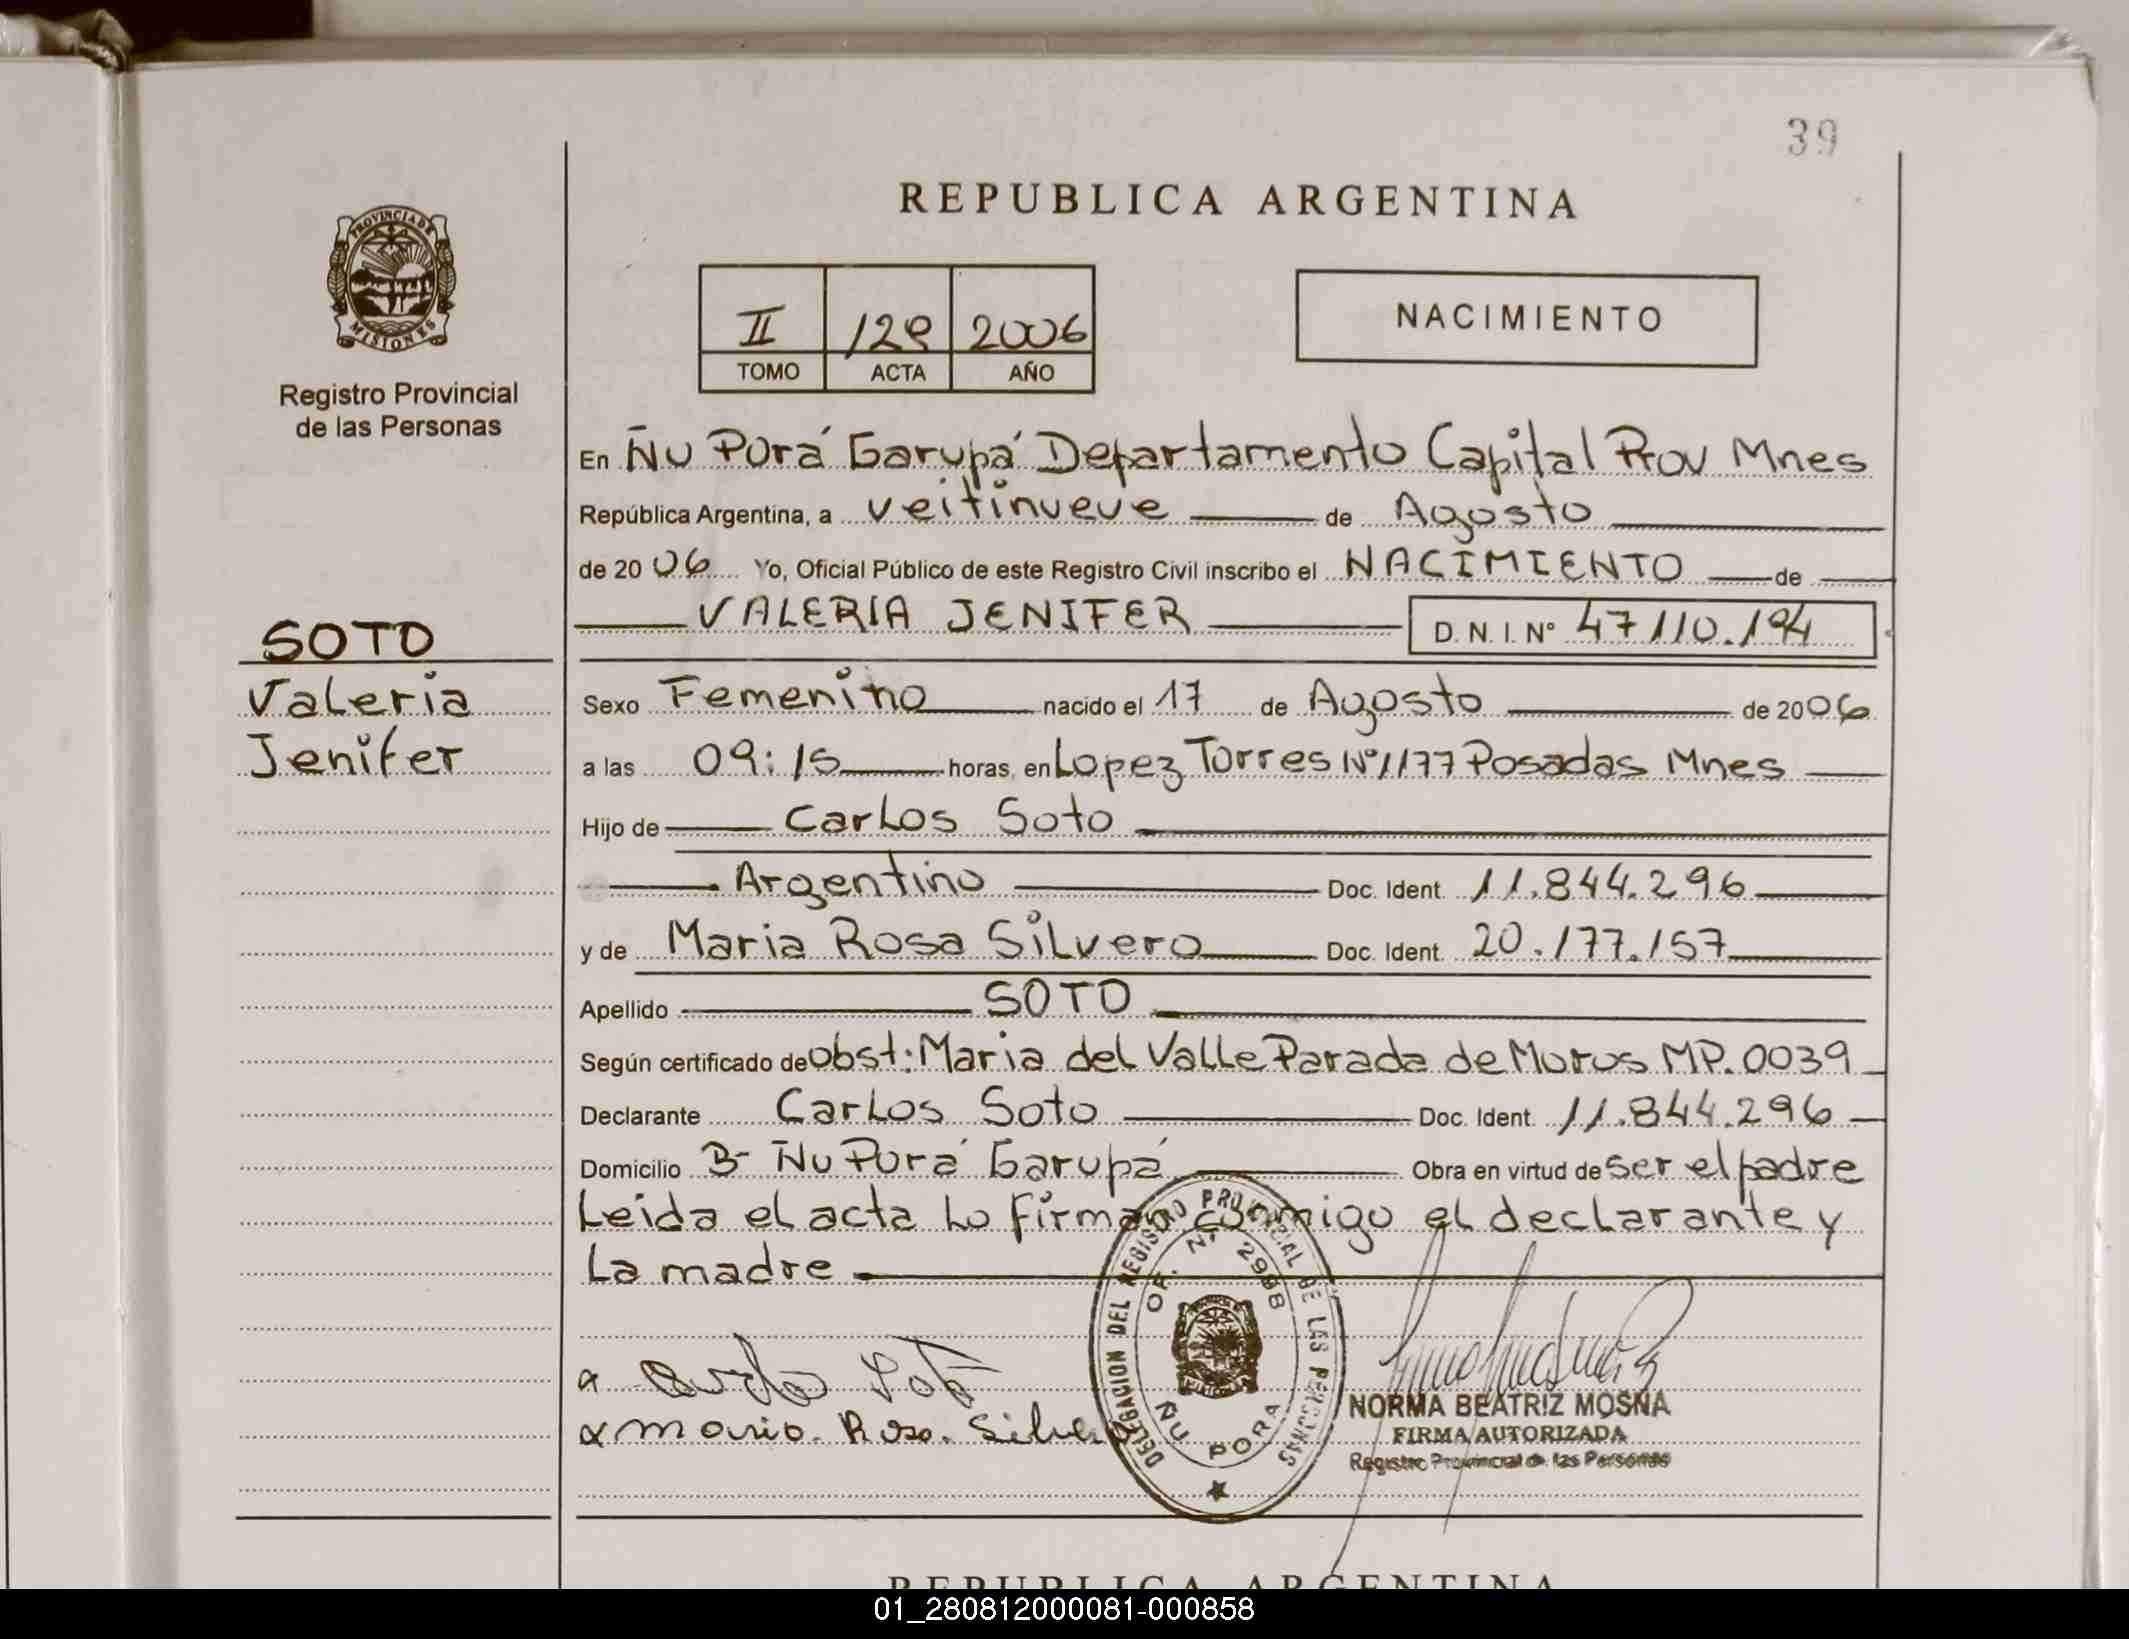 39
REPUBLICA ARGENTINA
PROVINCIA DE
MISIONES
Registro Provincial
de las Personas
II 129 2006
TOMO ACTA AÑO
NACIMIENTO
En Ñu Porá Garupá Departamento Capital Prov Mnes
República Argentina, a veitinueve de Agosto
de 2006 Yo, Oficial Público de este Registro Civil inscribo el NACIMIENTO de
VALERIA JENIFER D.N.I. Nº 47110.194
SOTO
Valeria
Jenifer
Sexo Femenino nacido el 17 de Agosto de 2006
a las 09:15 horas, en Lopez Torres Nº1177 Posadas Mnes
Hijo de Carlos Soto
Argentino Doc. Ident. 11.844.296
y de Maria Rosa Silvero Doc. Ident. 20.177.157
Apellido SOTO
Según certificado de obst: Maria del Valle Parada de Moros MP. 0039
Declarante Carlos Soto Doc. Ident. 11.844.296
Domicilio Bº Ñu Porá Garupá Obra en virtud de ser el padre
Leida el acta lo firman conmigo el declarante y
la madre
DELEGACION DEL REGISTRO PROVINCIAL DE LAS PERSONAS
OF. Nº 2988
ÑU PORA
Soto
Maria Rosa Silvero
NORMA BEATRIZ MOSNA
FIRMA AUTORIZADA
Registro Provincial de las Personas
REPUBLICA ARGENTINA
01_280812000081-000858